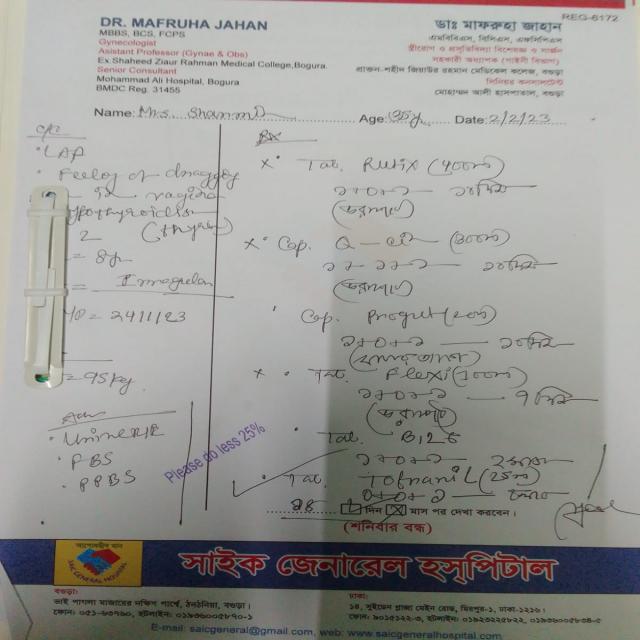 REG-6172
DR. MAFRUHA JAHAN
MBBS, BCS, FCPS
Gynecologist
Asistant Professor (Gynae & Obs)
Ex.Shaheed Ziaur Rahman Medical College,Bogura.
Senior Consultant
Mohammad Ali Hospital, Bogura
BMDC Reg. 31455
ডাঃ মাফরুহা জাহান
এমবিবিএস, বিসিএস, এফসিপিএস
স্ত্রীরোগ ও প্রসূতিবিদ্যা বিশেষজ্ঞ ও সার্জন
সহকারী অধ্যাপক (গাইনী বিভাগ)
প্রাক্তন-শহীদ জিয়াউর রহমান মেডিকেল কলেজ, বগুড়া
সিনিয়র কনসালটেন্ট
মোহাম্মদ আলী হাসপাতাল, বগুড়া
Name: Mrs. Age: 35y Date: 2/2/23
C/C
LAP
Feeling of dragging
in vagina
2 (thyrin)
= 8y
= Irregular
= 24/1/23
= 95kg.
Adv
Urine R/E
FBS
PPBS
Rx
x Tab. Rutix (400mg)
১+০+১ ১০দিন
(ভরাপেটে)
x Cap.
১০দিন
(ভরাপেটে)
Cap. Progut (20mg)
১+০+১ — ১০দিন
x Tab. Flexi (100mg)
১+০+১ — ৭দিন
(ভরাপেটে)
Tab.
১+০+১
Tab. Tofnanil (25mg)
০+০+১
Please do less 25%
দিন মাস পর দেখা করবেন।
(শনিবার বন্ধ)
SAIC GENERAL HOSPITAL
সাইক জেনারেল হস্‌পিটাল
বগুড়া:
ভাই পাগলা মাজারের দক্ষিণ পার্শ্বে, ঠনঠনিয়া, বগুড়া।
ফোন: ০৫১-৬৩৭৯০, হটলাইন: ০১৯৩৬০০৫৮৭০-১
ঢাকা:
১৪, সুইডেন প্লাজা মেইন রোড, মিরপুর-১, ঢাকা-১২১৬।
ফোন: ৯০১৫১২২-৩, হটলাইন: ০১৯২৩২২৫৮২২, ০১৯৩৬০০৫৮৩৮-৫
E-mail: saicgeneral@gmail.com, web: www.saicgeneralhospital.com